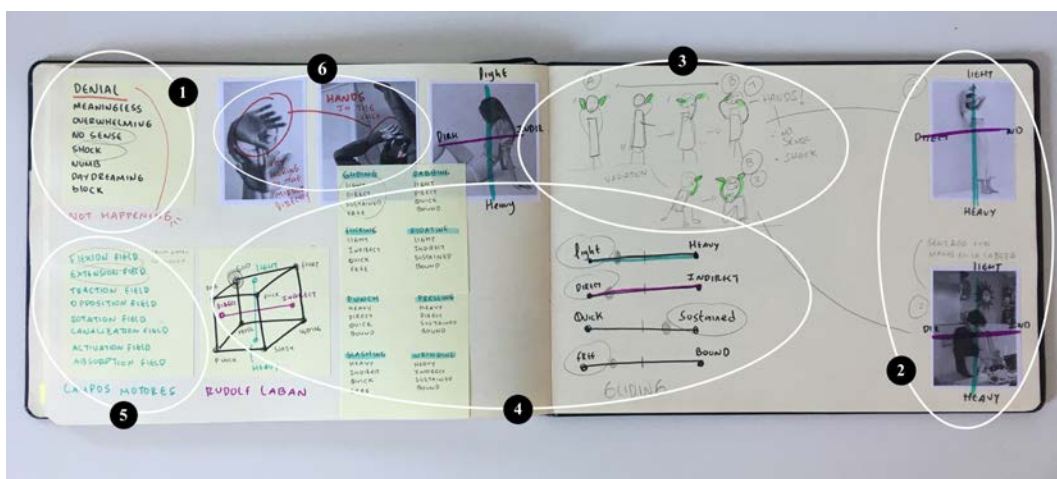 1
DENIAL
MEANINGLESS
OVERWHELMING
NO SENSE
SHOCK
NUMB
DAYDREAMING
BLOCK
NOT HAPPENING
6
HANDS
IN THE
light
DIR
INDIR
Heavy
GLIDING
LIGHT
DIRECT
SUSTAINED
FREE
DABBING
LIGHT
DIRECT
QUICK
BOUND
LIGHT
INDIRECT
QUICK
FREE
FLOATING
LIGHT
INDIRECT
SUSTAINED
BOUND
PUNCH
HEAVY
DIRECT
QUICK
BOUND
PRESSING
HEAVY
DIRECT
SUSTAINED
BOUND
SLASHING
HEAVY
INDIRECT
QUICK
FREE
WRINGING
HEAVY
INDIRECT
SUSTAINED
BOUND
5
FLEXION FIELD
EXTENSION FIELD
TRACTION FIELD
OPPOSITION FIELD
ROTATION FIELD
CANALIZATION FIELD
ACTIVATION FIELD
ABSORPTION FIELD
CAMPOS MOTORES
LIGHT
DIRECT
INDIRECT
PUNCH
SLASH
HEAVY
RUDOLF LABAN
3
A
B
HANDS!
NO
SENSE
SHOCK
VARIATION
B
2
4
light
HEAVY
DIRECT
INDIRECT
QUICK
Sustained
FREE
BOUND
GLIDING
2
LIGHT
DIRECT
IND
HEAVY
SENTADO CON
LIGHT
DIR
IND
HEAVY